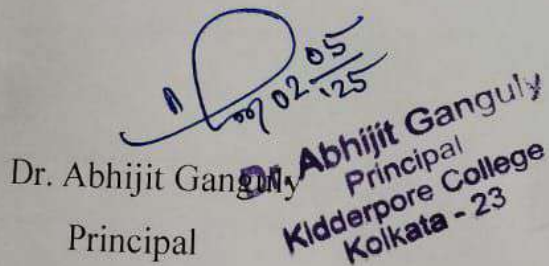 02.05
'25
Dr. Abhijit Ganguly
Principal
Dr. Abhijit Ganguly
Principal
Kidderpore College
Kolkata - 23